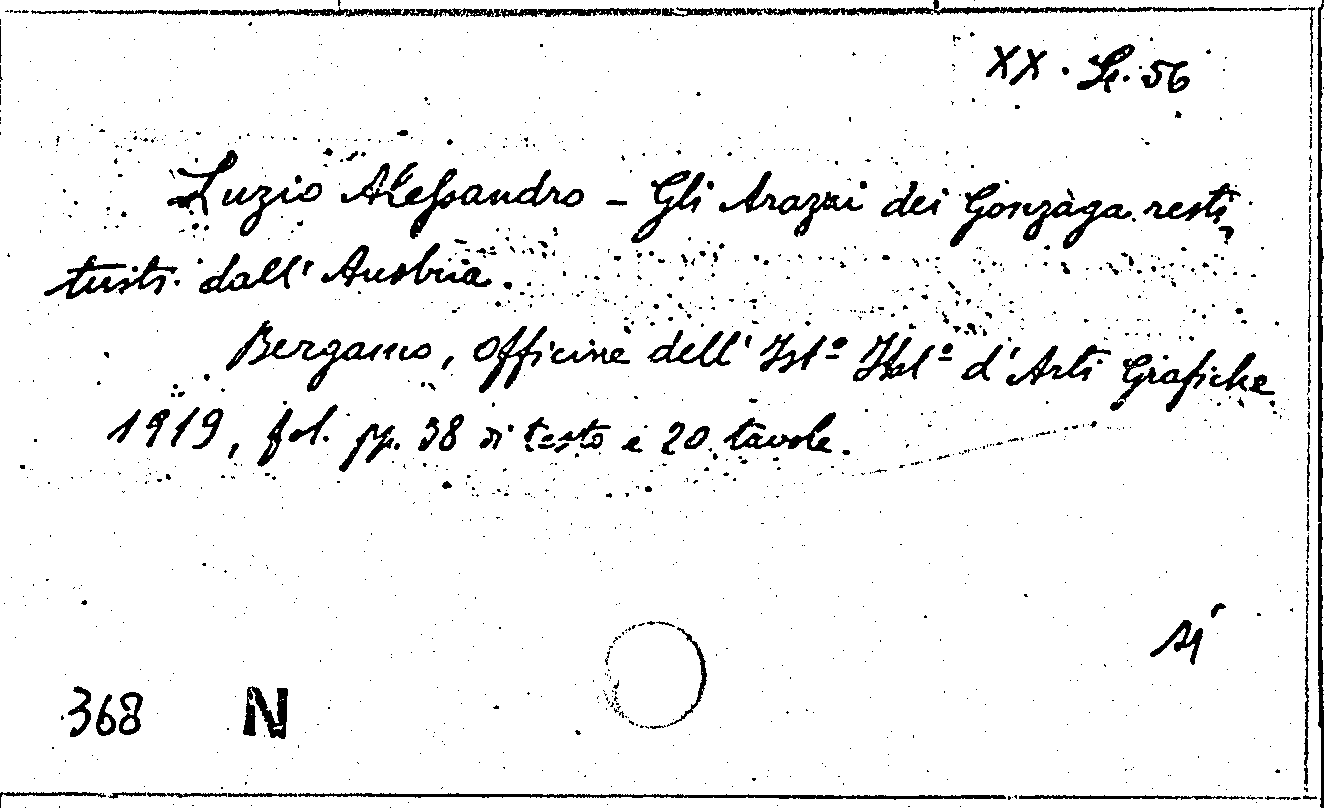 XX. Sc. 56
Luzio Alessandro – Gli Arazzi dei Gonzàga resti
tuiti dall'Austria.
Bergamo, Officine dell'Istº Italº d'Arti Grafiche
1919, fol. pp. 38 di testo e 20 tavole.
sì
368 N